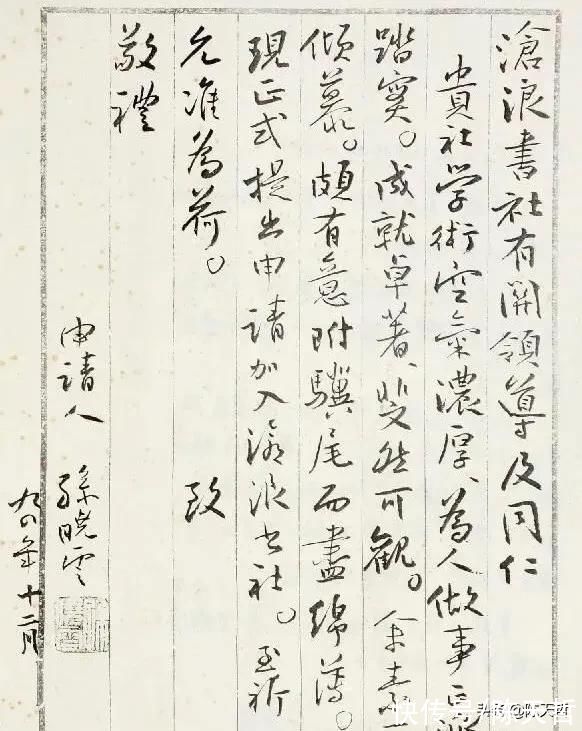 滄浪書社有關領導及同仁
貴社學術空氣濃厚、為人做事
踏實。成就卓著、斐然可觀。余素
傾慕。頗有意附驥尾而盡綿薄。
現正式提出申請加入滄浪书社。至祈
允准為荷。 致
敬禮
申請人 孫曉雲
九四年十二月
快传号
头条@陈天哲